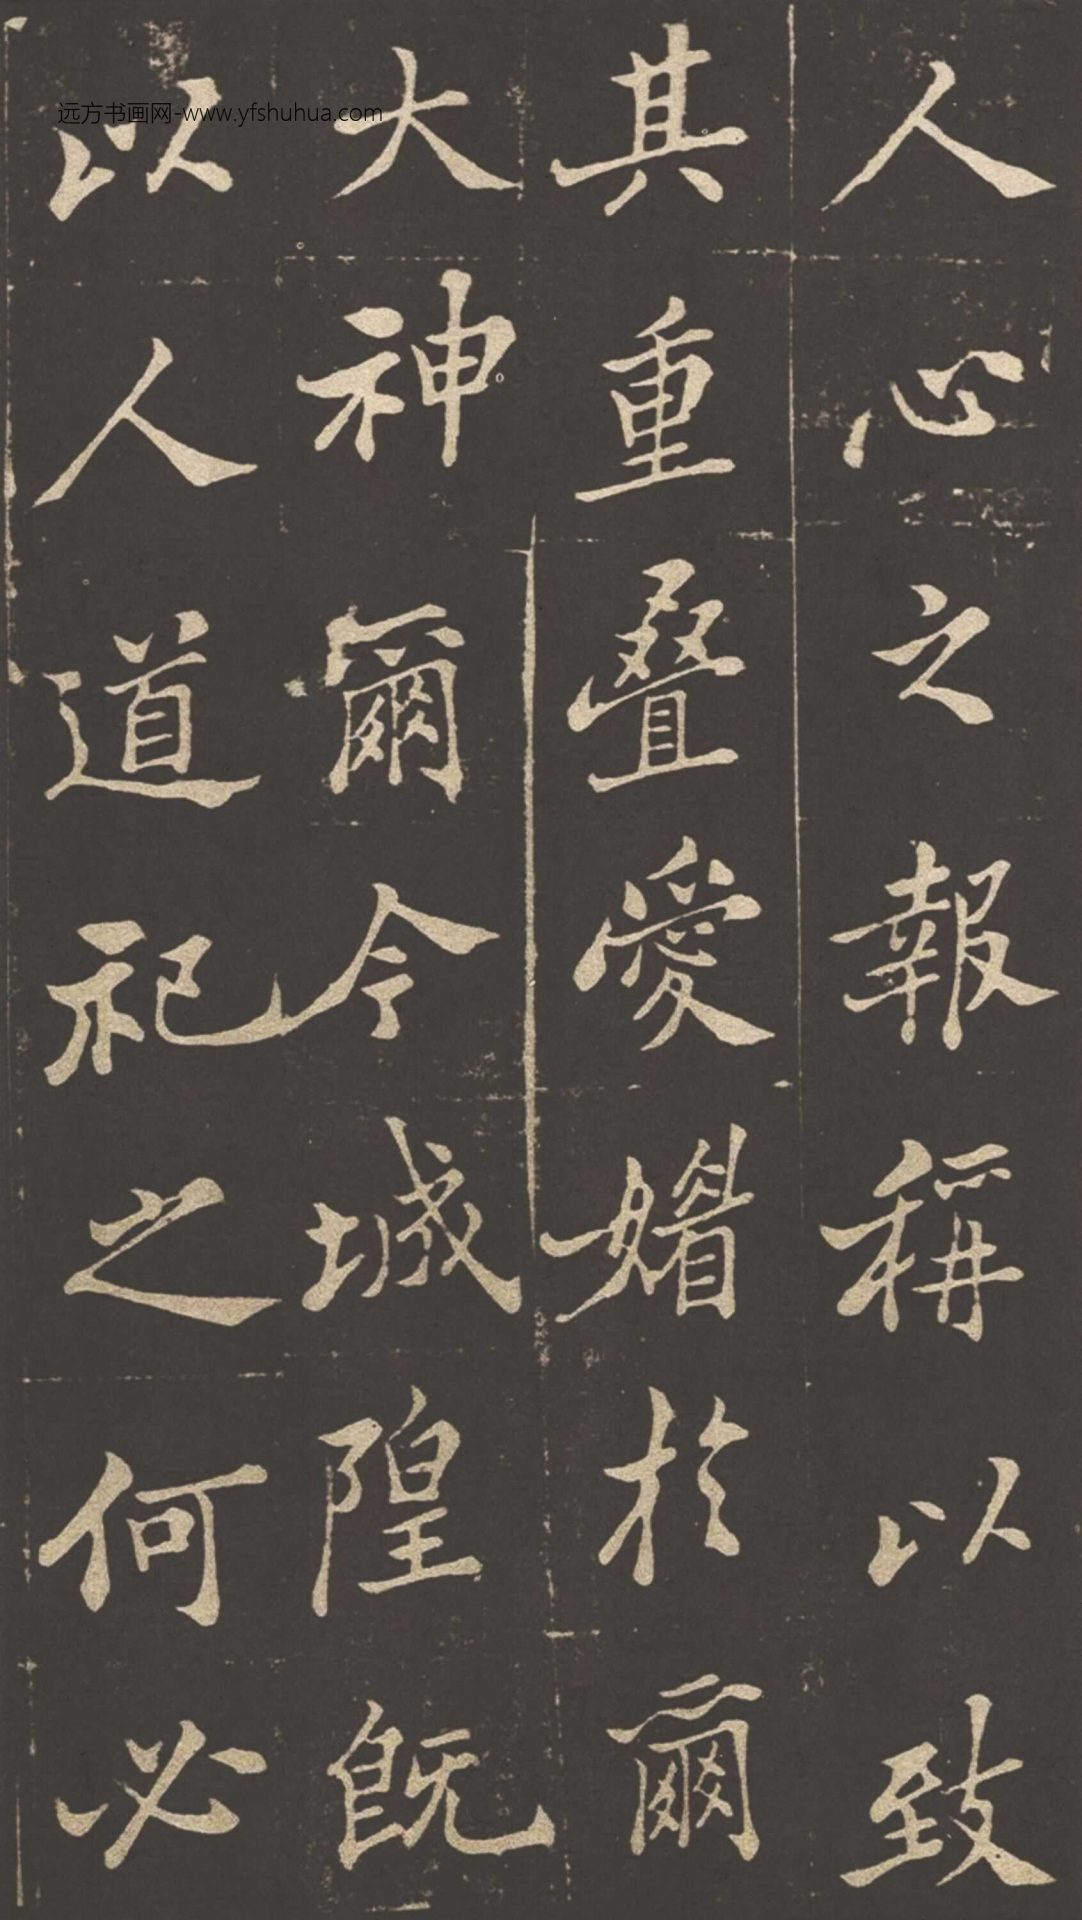 人心之報稱以致
其重疊愛媚於爾
大神爾今城隍既
以人道祀之何必
远方书画网-www.yfshuhua.com